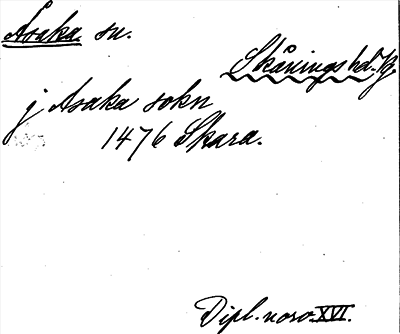 Åsaka sn.
Skånings hd. Vg.
j Asaka sokn
1476 Skara.
Dipl. norv. XVI.